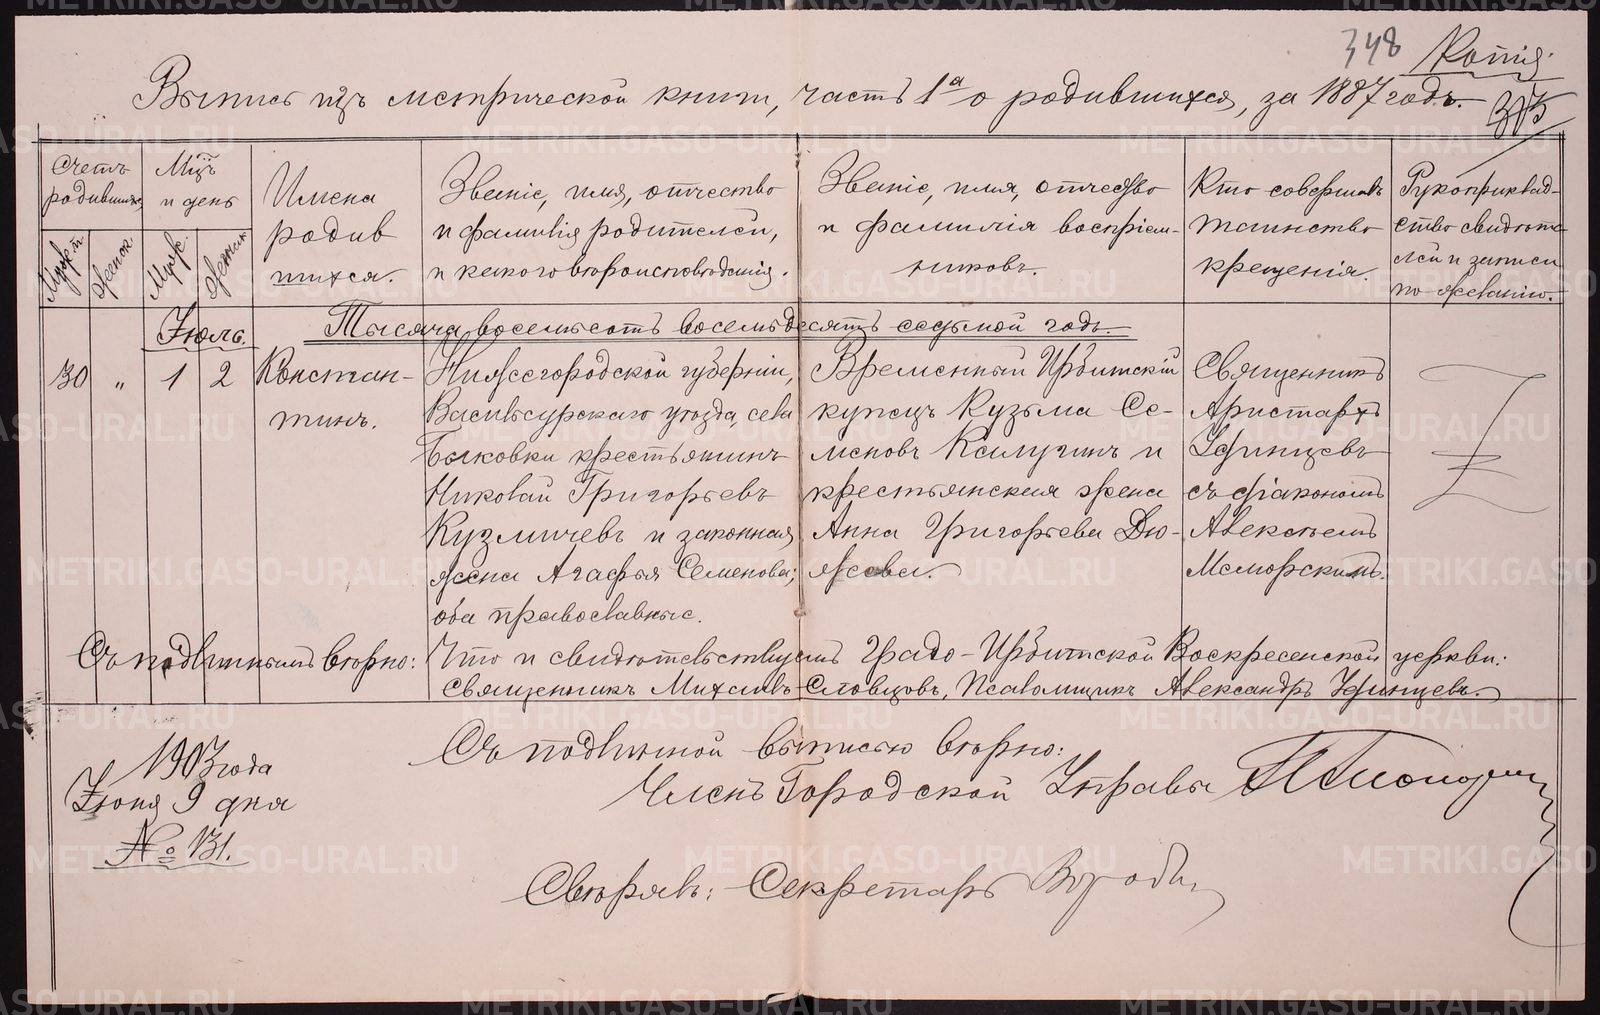 348 Копія.
Выпись изъ метрической книги, часть 1ª о родившихся, за 1887 годъ.
305
Счетъ родившихся
Мужск.
Женск.
Мцъ и день
Имена
родив
шихся.
Званіе, имя, отчество
и фамилія родителей,
и какого вѣроисповѣданія.
Званіе, имя, отчество
и фамилія воспріем-
никовъ.
Кто совершалъ
таинство
крещенія.
Рукоприклад-
ство свидѣте-
лей и записи
по желанію.
Іюль. Тысяча восемьсотъ восемьдесятъ седьмой годъ.
30 „ 1 2
Констан-
тинъ.
Нижегородской губерніи,
Васильсурскаго уѣзда, села
Быковки крестьянинъ
Николай Григорьевъ
Кузмичевъ и законная
жена Агафья Семенова;
оба православные.
Временный Ирбитскій
купецъ Кузьма Се-
меновъ Калугинъ и
крестьянская жена
Анна Григорьева Дю-
жева.
Священникъ
Аристархъ
Удинцевъ
съ діакономъ
Алексѣемъ
Маморскимъ.
Съ подлиннымъ вѣрно: Что и свидѣтельствуемъ Градо-Ирбитской Воскресенской церкви:
Священникъ Михаилъ Словцовъ, Псаломщикъ Александръ Удинцевъ.
Съ подлинной выписью вѣрно:
1903 года
Іюня 9 дня
№ 131.
Членъ Городской Управы
Свѣрялъ: Секретарь
METRIKI.GASO-URAL.RU